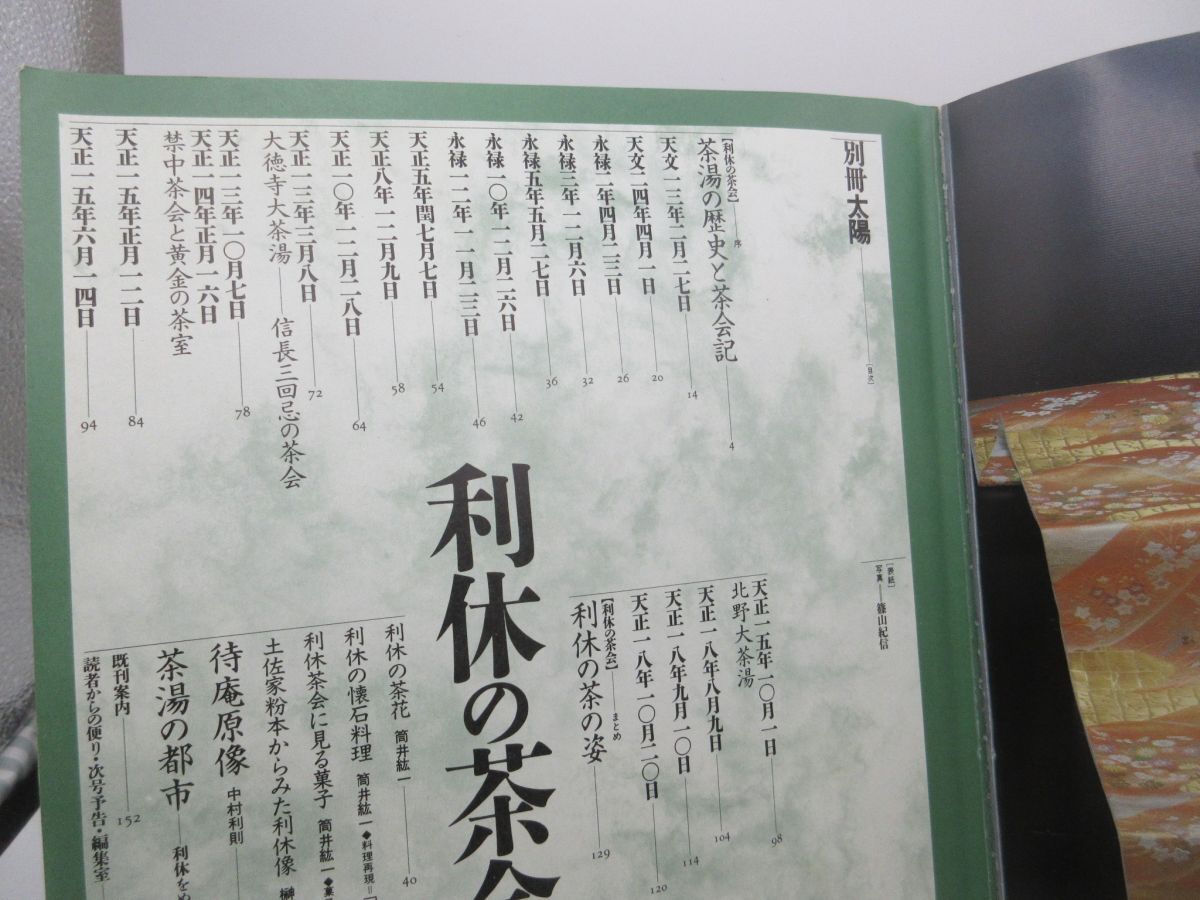 別冊太陽
[目次]
[利休の茶会]―序
茶湯の歴史と茶会記 4
天文一三年二月二七日 14
天文二四年四月一日 20
永禄二年四月二三日 26
永禄三年一二月六日 32
永禄五年五月二七日 36
永禄一〇年一二月二六日 42
永禄一二年一一月二三日 46
天正五年閏七月七日 54
天正八年一二月九日 58
天正一〇年一二月二八日 64
天正一三年三月八日 72
大徳寺大茶湯―信長三回忌の茶会
天正一三年一〇月七日 78
天正一四年正月一六日
禁中茶会と黄金の茶室
天正一五年正月一二日 84
天正一五年六月一四日 94
利休の茶会
[表紙]
写真―篠山紀信
天正一五年一〇月一日 98
北野大茶湯
天正一八年八月九日 104
天正一八年九月一〇日 114
天正一八年一〇月二〇日 120
[利休の茶会]―まとめ
利休の茶の姿 129
利休の茶花 筒井紘一 40
利休の懐石料理 筒井紘一◆料理再現=
利休茶会に見る菓子 筒井紘一◆菓
土佐家粉本からみた利休像 榊
待庵原像 中村利則
茶湯の都市―利休をめ
既刊案内 152
読者からの便り・次号予告・編集室